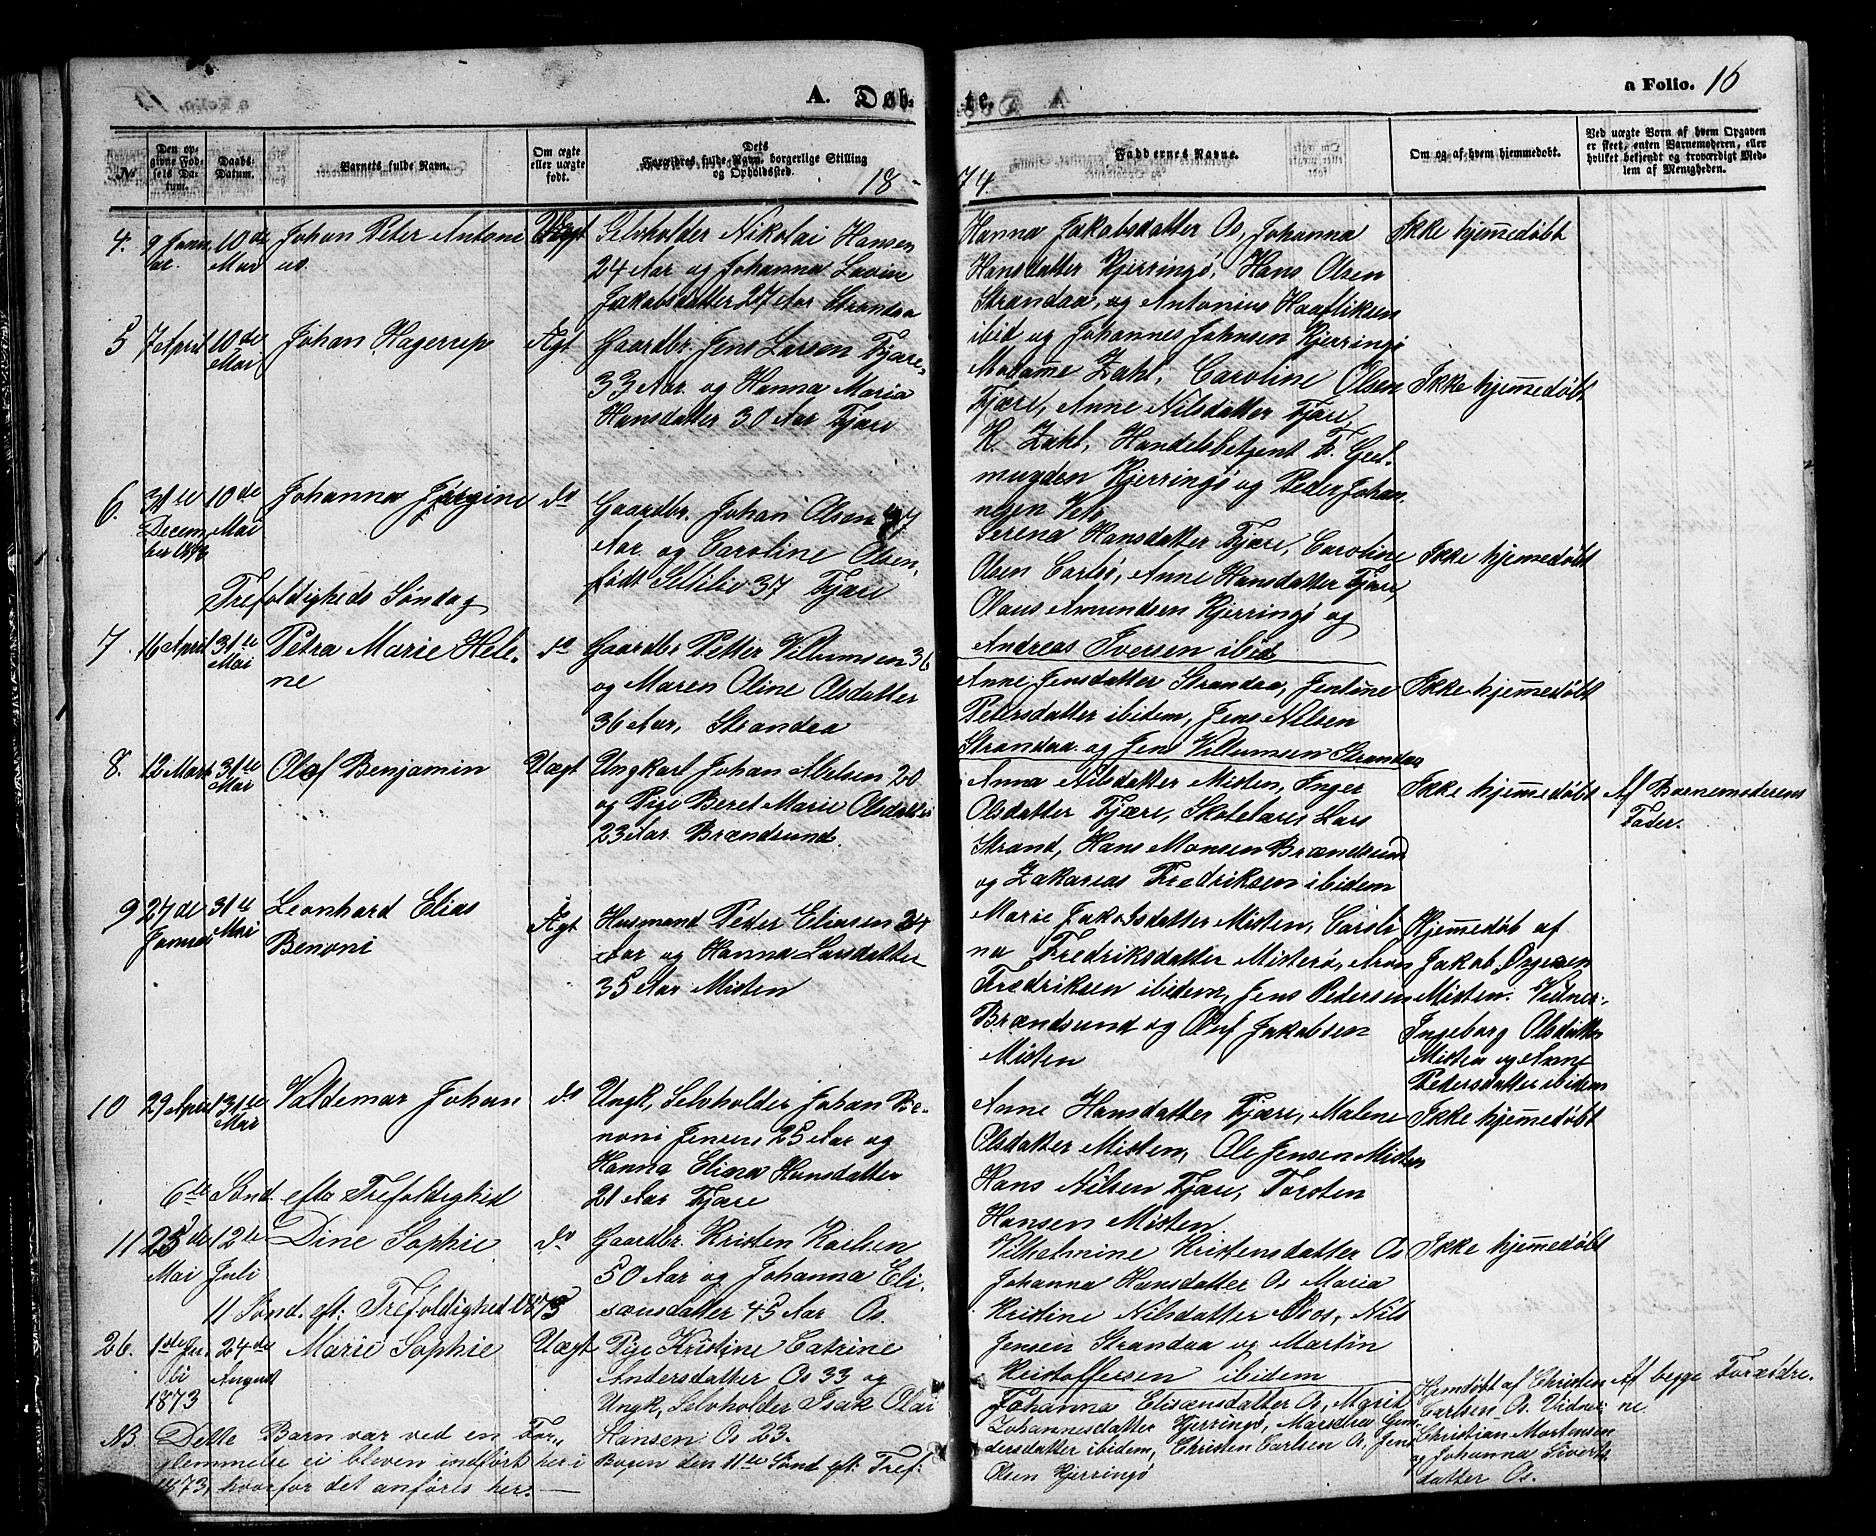 A. Døb-
te.
a Folio. 16
No
Den op-
givne Fød-
sels Da-
tum.
Daabs-
Datum.
Barnets fulde Navn.
Om ægte
eller uægte
født.
Dets
Forældres fulde Navn, borgerlige Stilling
og Opholdssted.
Faddernes Navne.
Om og af hvem hjemmedøbt.
Ved uægte Børn af hvem Opgaven
er skeet, enten Barnemoderen, eller
hvilket bekjendt og troværdigt Med-
lem af Menigheden.
18-
74
4. 9 Janu
ar.
10de
Mai
Johan Peter Antoni
us.
Selvholder Nikolai Hansen
24 Aar og Johanna Lovise
Jakobsdatter 27 Aar Strandaa
Hanna Jakobsdatter Os, Johanna
Hansdatter Kjerringø, Hans Olsen
Strandaa, og Antonius Haagtiksen
ibid og Johannes Johnsen Kjerringø
Ikke hjemmedøbt
5 7 April
10de
Mai
Johan Hagerup
Ægt
Gaardbr. Jens Larsen Fjære,
33 Aar og Hanna Maria
Hansdatter 30 Aar Fjære
Madame Zahl, Caroline Olsen
Fjære, Anne Nilsdatter Fjære,
K. Zahl, Handelsbetjent F. Geel-
mugden Kjerringø og Peder Johan-
nesen Vets
Ikke hjemmedøbt
6. 31te
Decem
ber 1873
10de
Mai
Johanna Jørgine
do
Gaardbr. Johan Olsen 47
Aar og Caroline Olsen,
født Selilie 37 Fjære
Serena Hansdatter Fjære, Caroline
Olsen Carlsø, Anne Hansdatter Fjære,
Olaus Amundsen Kjerringø og
Andreas Iversen ibid
Ikke hjemmedøbt
Trefoldigheds Søndag
7. 16 April
31te
Mai
Petra Marie Hele-
ne
do
Gaardbr Petter Villumsen 36
og Maren Oline Olsdatter
36 Aar, Strandaa
Anne Jensdatter Strandaa, Jentine
Petersdatter ibidem, Jens Nilsen
Strandaa og Jens Villumsen Strandaa
Ikke hjemmedøbt
8. 12 Marts
31te
Mai
Olaf Benjamin
Uægt
Ungkarl Johan Nielsen 20
og Pige Beret Marie Olsdatter
23 Aar Brændsund.
Anna Nilsdatter Misten, Inger
Olsdatter Fjære, Skolelærer Lars
Strand, Hans Monsen Brændsund
og Zakarias Fredriksen ibidem
Ikke hjemmedøbt
Af Barnemoderens
Fader.
9 27de
Januar
31te
Mai
Leonhard Elias
Benoni
Ægt
Husmand Peder Eliasen 34
Aar og Hanna Larsdatter
35 Aar Misten
Marie Jakobsdatter Misten, Caroli
na Fredriksdatter Misterø, Aron
Fredriksen ibidem, Jens Pedersen
Brændsund og Oluf Jakobsen
Misten
Hjemmedøb af
Jakob
Misten. Vidner-
Ingeborg Olsdatter
Misten og Anne
Pedersdatter ibidem
10 29 April
31te
Mai
Valdemar Johan
do
Ungk, Selvholder Johan Be-
noni Jensen 25 Aar og
Hanna Elina Hansdatter
21 Aar Fjære
Anne Hansdatter Fjære, Malene
Olsdatter Misten, Ole Jensen Misten
Hans Nilsen Fjære, Torsten
Hansen Misten
Ikke hjemmedøbt
6te Sønd. efter Trefoldighed
11 25de
Mai
12te
Juli
Dine Sophie
do
Gaardbr. Kristen Karlsen
50 Aar og Johanna Eli-
sæusdatter 45 Aar Os.
Vilhelmine Kristensdatter Os
Johanna Hansdatter Os Maria
Kristine Nilsdatter Os, Nils
Jensen Strandaa og Martin
Kristoffersen ibidem
Ikke hjemmedøbt
11 Sønd. eft: Trefoldighed 1873
26. 1ste Ju-
li
1873
24de
August
Marie Sophie
Uægt
Pige Kristine Catrine
Andersdatter Os 33 og
Ungk, Selvholder Isak Olai
Hansen Os 23.
Johanna Elisæusdatter Os, Marit
Johannesdatter Kjerringø, Marthea
dersdatter ibidem, Christen Carlsen Os, Jens
Olsen Kjerringø
Hjemdøbt af Christen
Carlsen Os. Vidner
Christian Mortensen
og Johanna Siverts
datter Os.
Af begge Forældre-
ne
NB Dette Barn var ved en For-
glemmelse ei bleven indført her i Bogen den 11te Sønd. eft: Tref:
1873, hvorfor det anføres her.